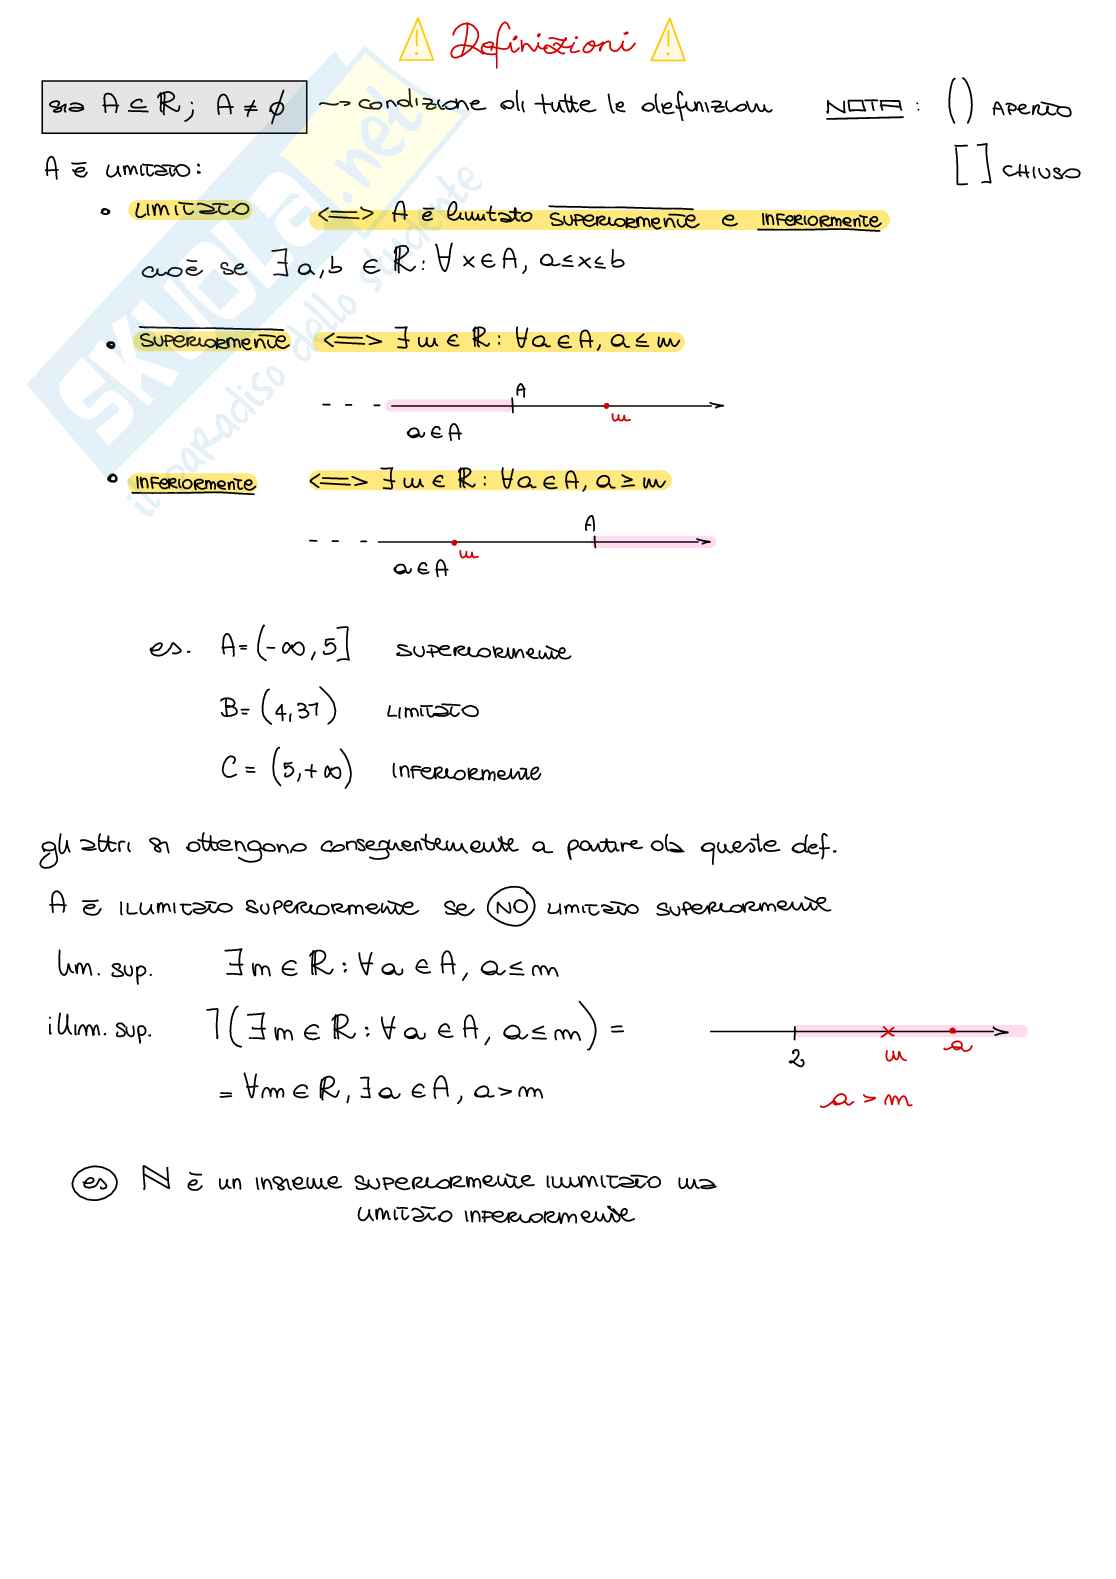 Definizioni
sia A ⊆ ℝ; A ≠ ∅ ~> condizione di tutte le definizioni NOTA : ( ) APERTO
[ ] CHIUSO
A è LIMITATO:
• LIMITATO <=> A è limitato SUPERIORMENTE e INFERIORMENTE
cioè se ∃ a,b ∈ ℝ: ∀ x ∈ A, a ≤ x ≤ b
• SUPERIORMENTE <=> ∃ m ∈ ℝ: ∀ a ∈ A, a ≤ m
A
m
a ∈ A
• INFERIORMENTE <=> ∃ m ∈ ℝ: ∀ a ∈ A, a ≥ m
A
m
a ∈ A
es. A = (-∞, 5] SUPERIORMENTE
B = (4, 37) LIMITATO
C = (5, +∞) INFERIORMENTE
gli altri si ottengono conseguentemente a partire da queste def.
A è ILLIMITATO SUPERIORMENTE se NO LIMITATO SUPERIORMENTE
lim. sup. ∃ m ∈ ℝ: ∀ a ∈ A, a ≤ m
illim. sup. ⅂(∃ m ∈ ℝ: ∀ a ∈ A, a ≤ m) =
2 m a
= ∀ m ∈ ℝ, ∃ a ∈ A, a > m
a > m
es ℕ è un insieme SUPERIORMENTE ILLIMITATO ma
LIMITATO INFERIORMENTE
SKUOLA.net
il paradiso dello studente